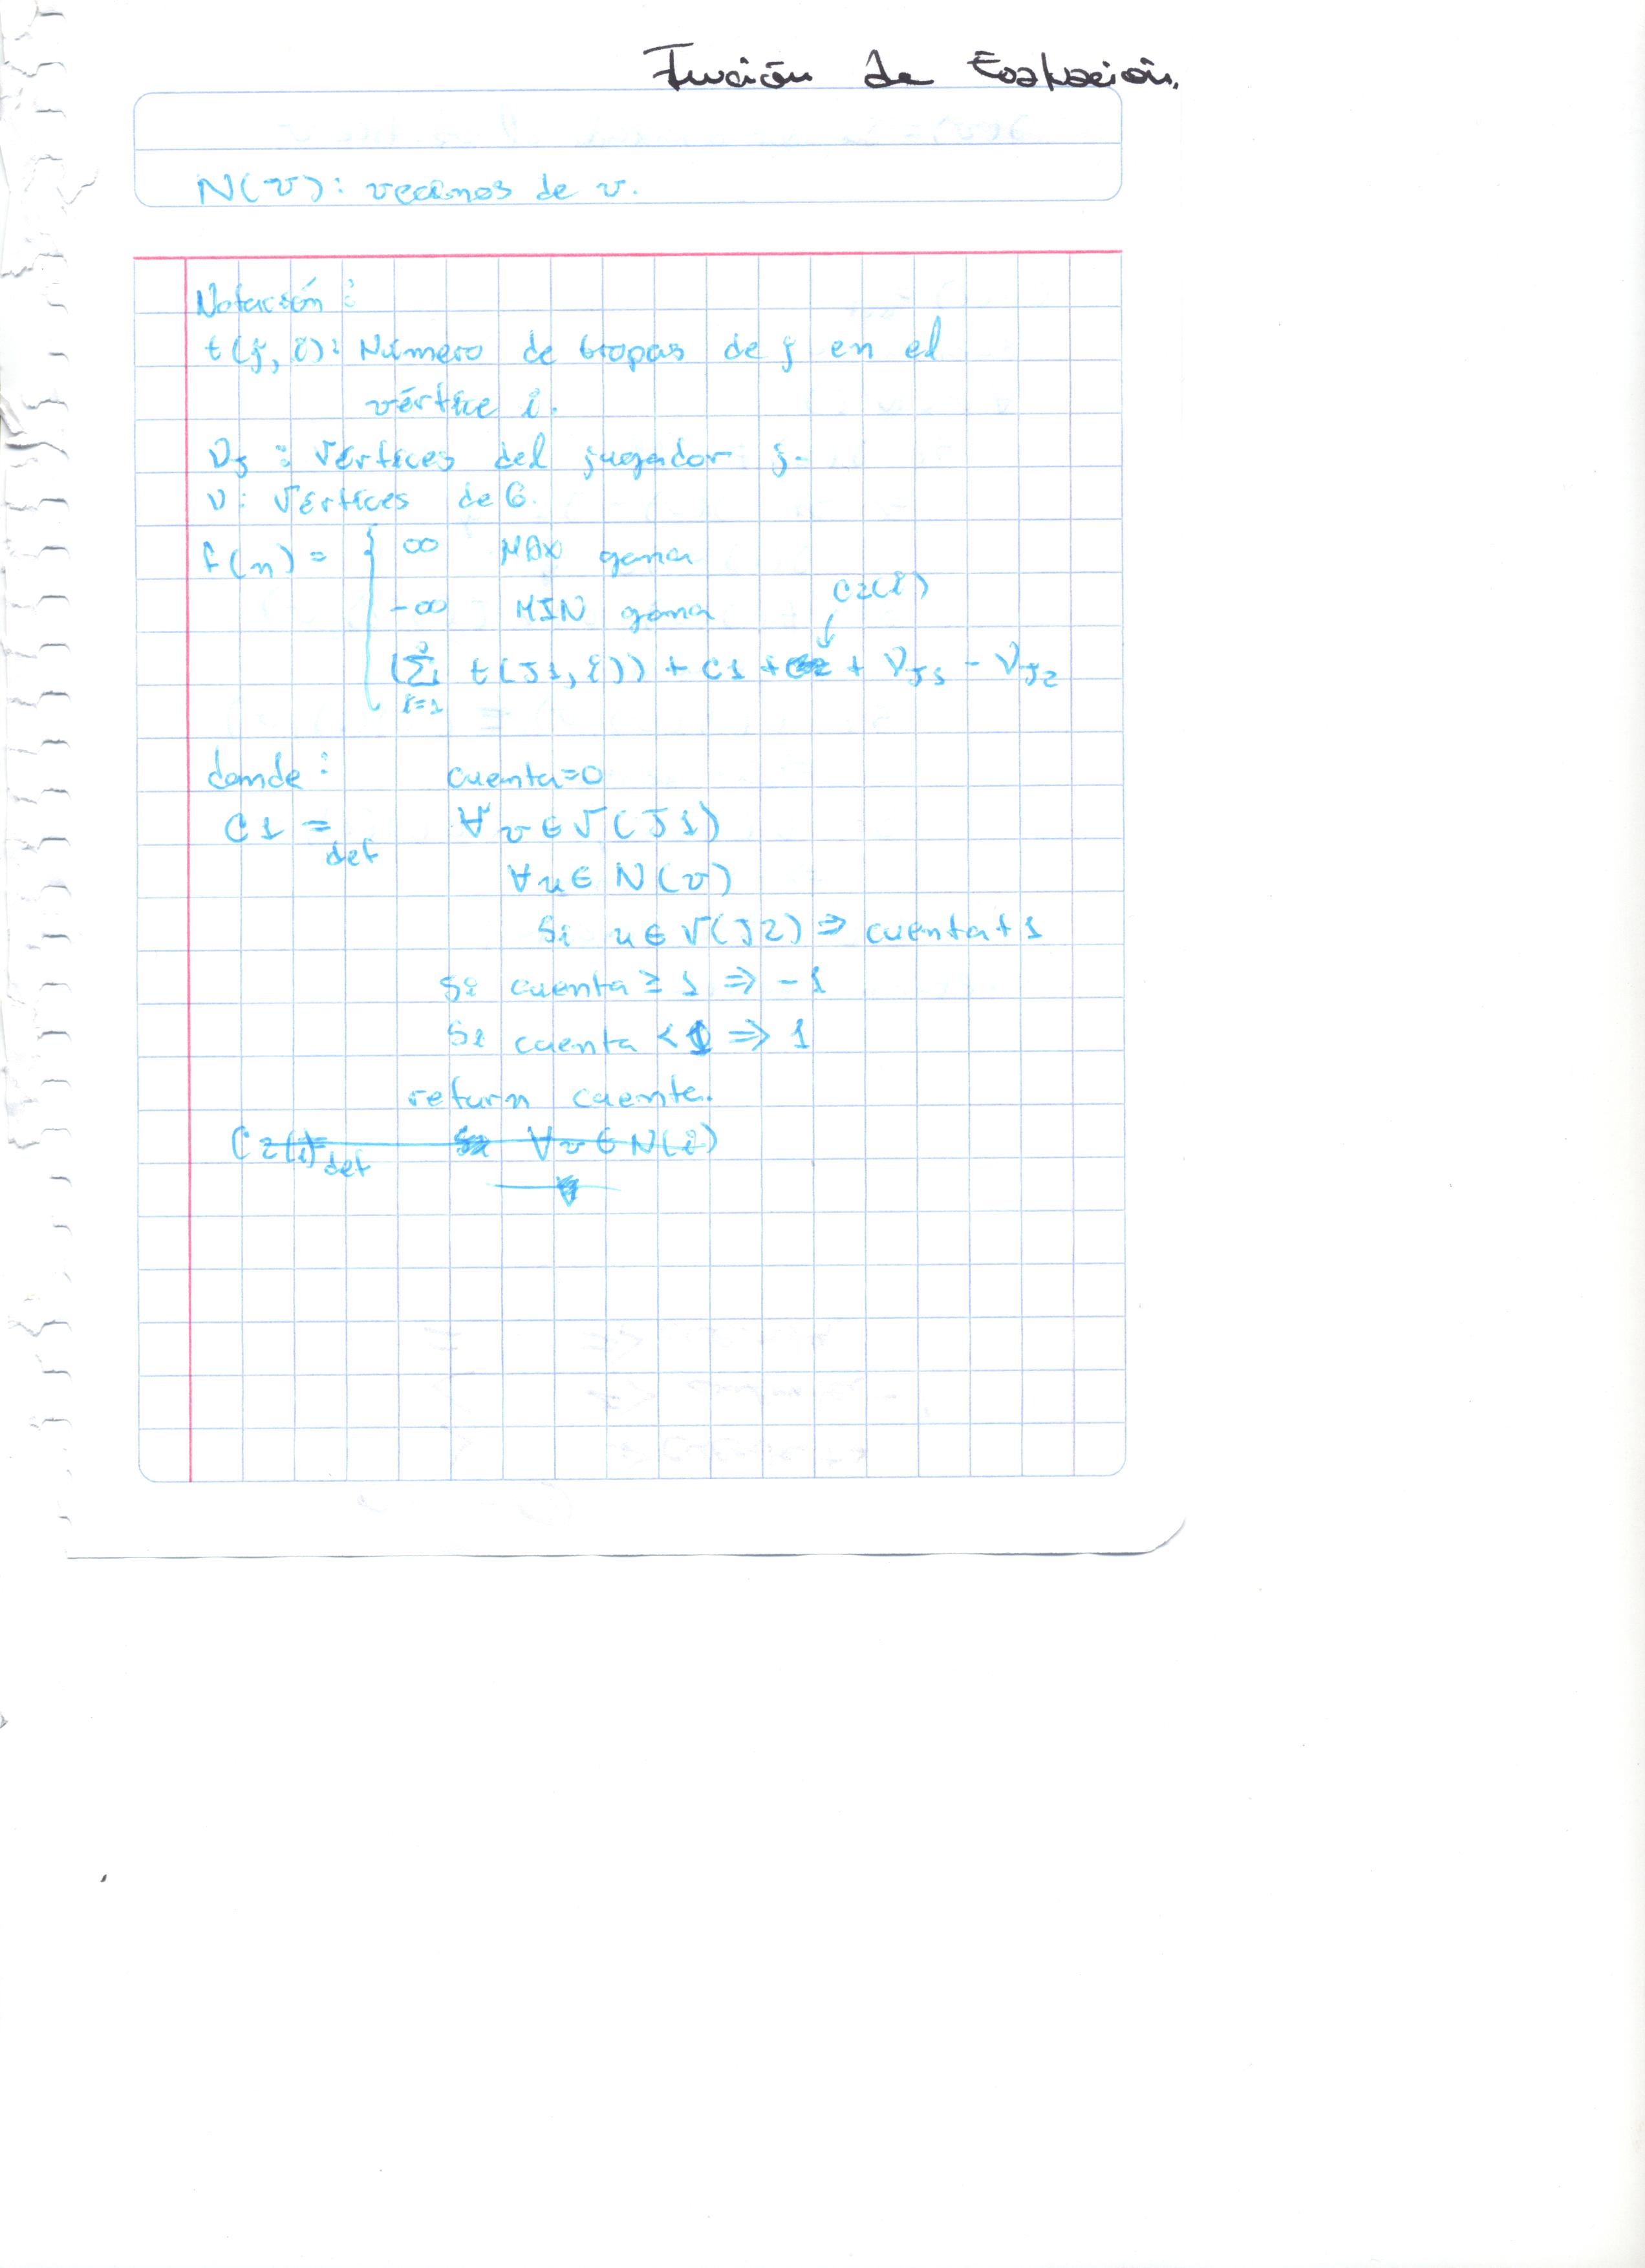 Función de Evaluación.
N(v): vecinos de v.
Notación:
t(j, i): Número de tropas de j en el
vértice i.
Vj : Vértices del jugador j.
V: Vértices de G.
f(n) = { ∞ MAX gana
-∞ MIN gana
C2(i)
↓
(Σ i=1 t(J1, i)) + C1 + + VJ1 - VJ2
donde: cuenta=0
C1 =def ∀ v ∈ V(J1)
∀ u ∈ N(v)
Si u ∈ V(J2) ⇒ cuenta+1
Si cuenta ≥ 1 ⇒ -1
Si cuenta < 1 ⇒ 1
return cuenta.
C2(i) =def ∀ v ∈ N(i)